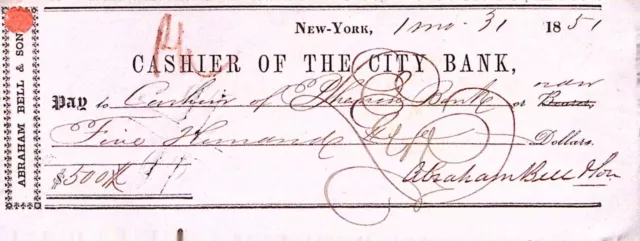 ABRAHAM BELL & SON
NEW-YORK, 1 mo. 31 1851
CASHIER OF THE CITY BANK,
Pay to Cashier of Phenix Bank or order Bearer,
Five Hundred Dollars.
$500
Abraham Bell & Son